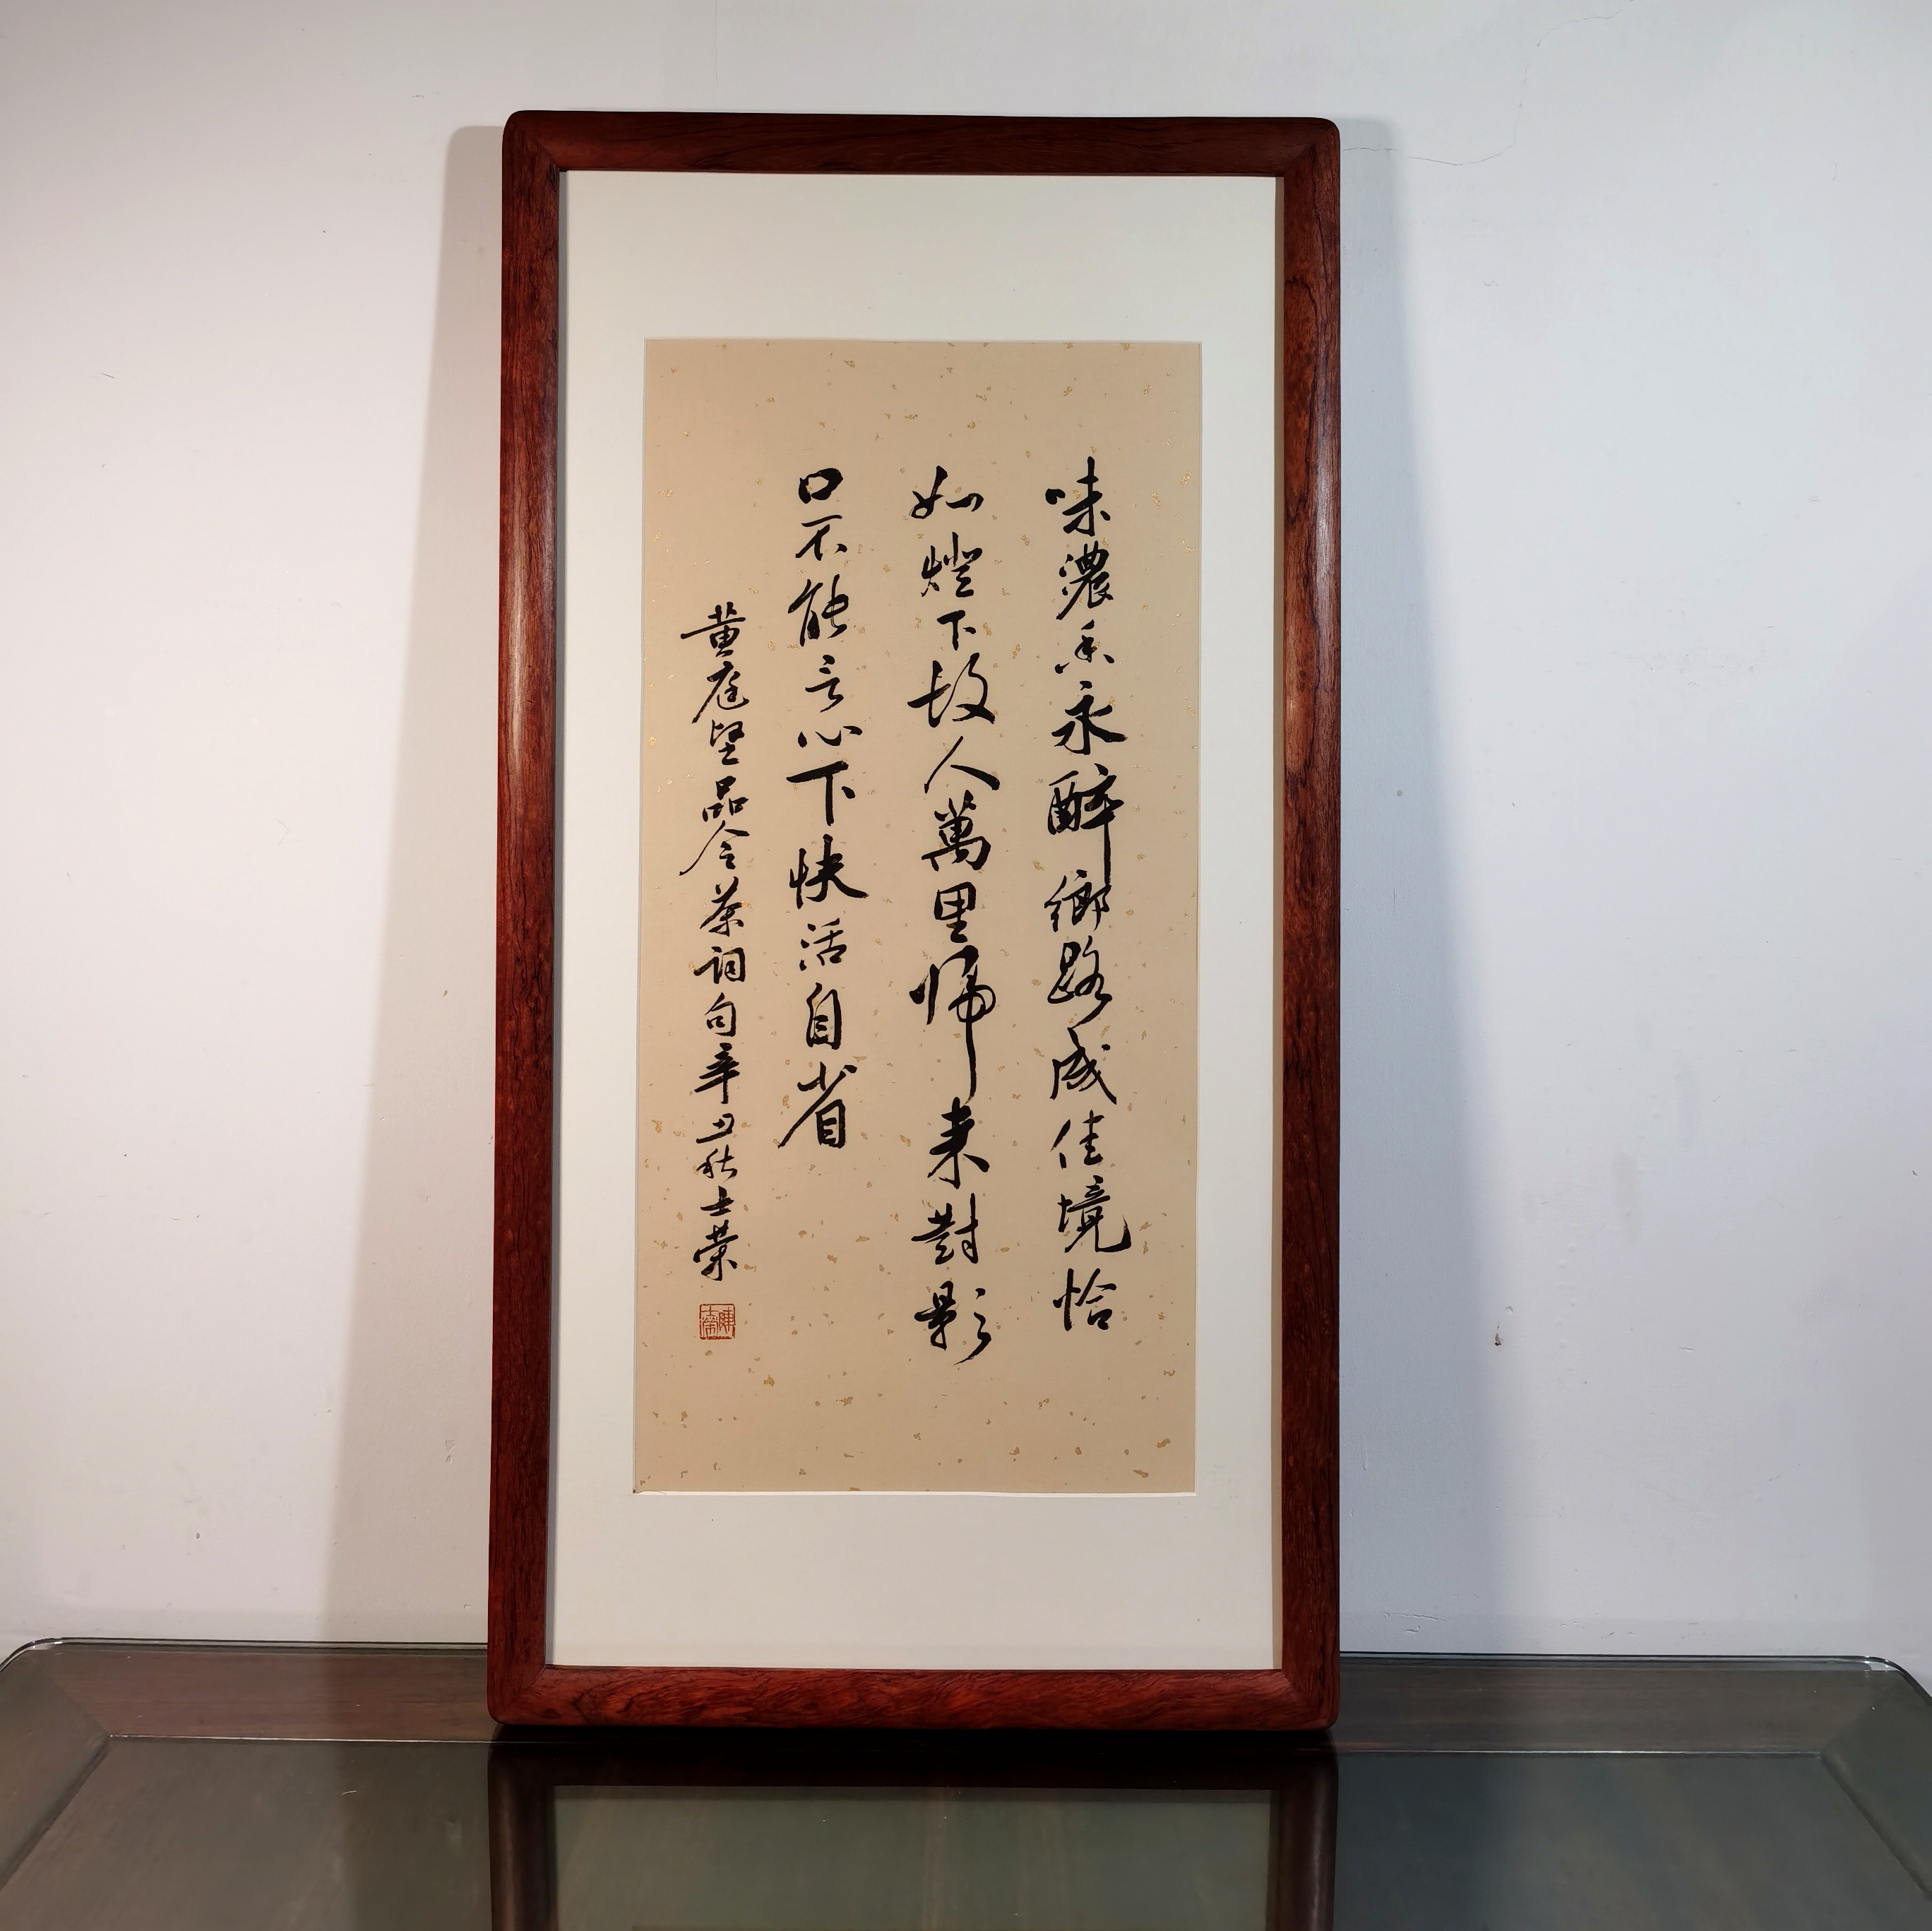 味濃香永醉鄉路成佳境恰
如燈下故人萬里歸来對影
口不能言心下快活自省
黃庭堅品令茶詞句辛丑秋士榮